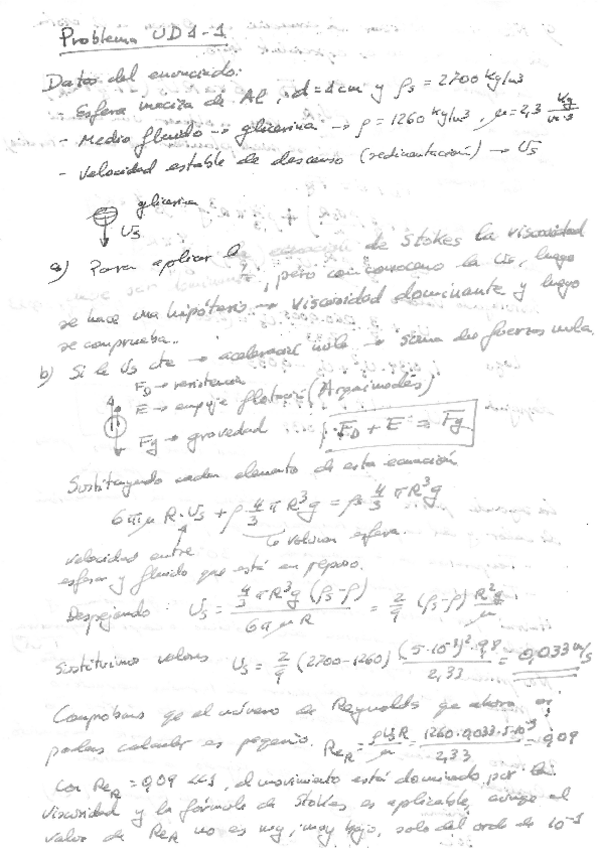 Problema UD1-1
Datos del enunciado:
- Esfera maciza de Al, d=1cm y ρs = 2700 kg/m3
- Medio fluido → glicerina → ρ = 1260 kg/m3, μ=2,3 kg/m·s
- Velocidad estable de descenso (sedimentación) → Us
glicerina
Us
a) Para aplicar la ecuación de Stokes la viscosidad
, pero no conocemos la Us, luego
se hace una hipótesis → viscosidad dominante y luego
se comprueba..
b) Si la Us cte → aceleración nula → suma de fuerzas nula.
FD → resistencia
E → empuje flotación (Arquímedes)
Fg → gravedad ... FD + E = Fg
Sustituyendo cada elemento de esta ecuación
6πμR·Us + ρ 4/3 πR³g = ρs 4/3 πR³g
↳ volumen esfera.
velocidad entre
esfera y fluido que está en reposo.
Despejando: Us = 4/3 πR³g (ρs-ρ) / 6πμR = 2/9 (ρs-ρ) R²g/μ
Sustituimos valores Us = 2/9 (2700-1260) (5·10⁻³)²·9,8 / 2,33 = 0,033 m/s
Comprobamos que el número de Reynolds que ahora sí
podemos calcular es pequeño. ReR = ρUsR/μ = 1260·0,033·5·10⁻³ / 2,33 = 0,09
Con ReR = 0,09 <<1, el movimiento está dominado por la
viscosidad y la fórmula de Stokes es aplicable, aunque el
valor de ReR no es muy, muy bajo, solo del orden de 10⁻¹